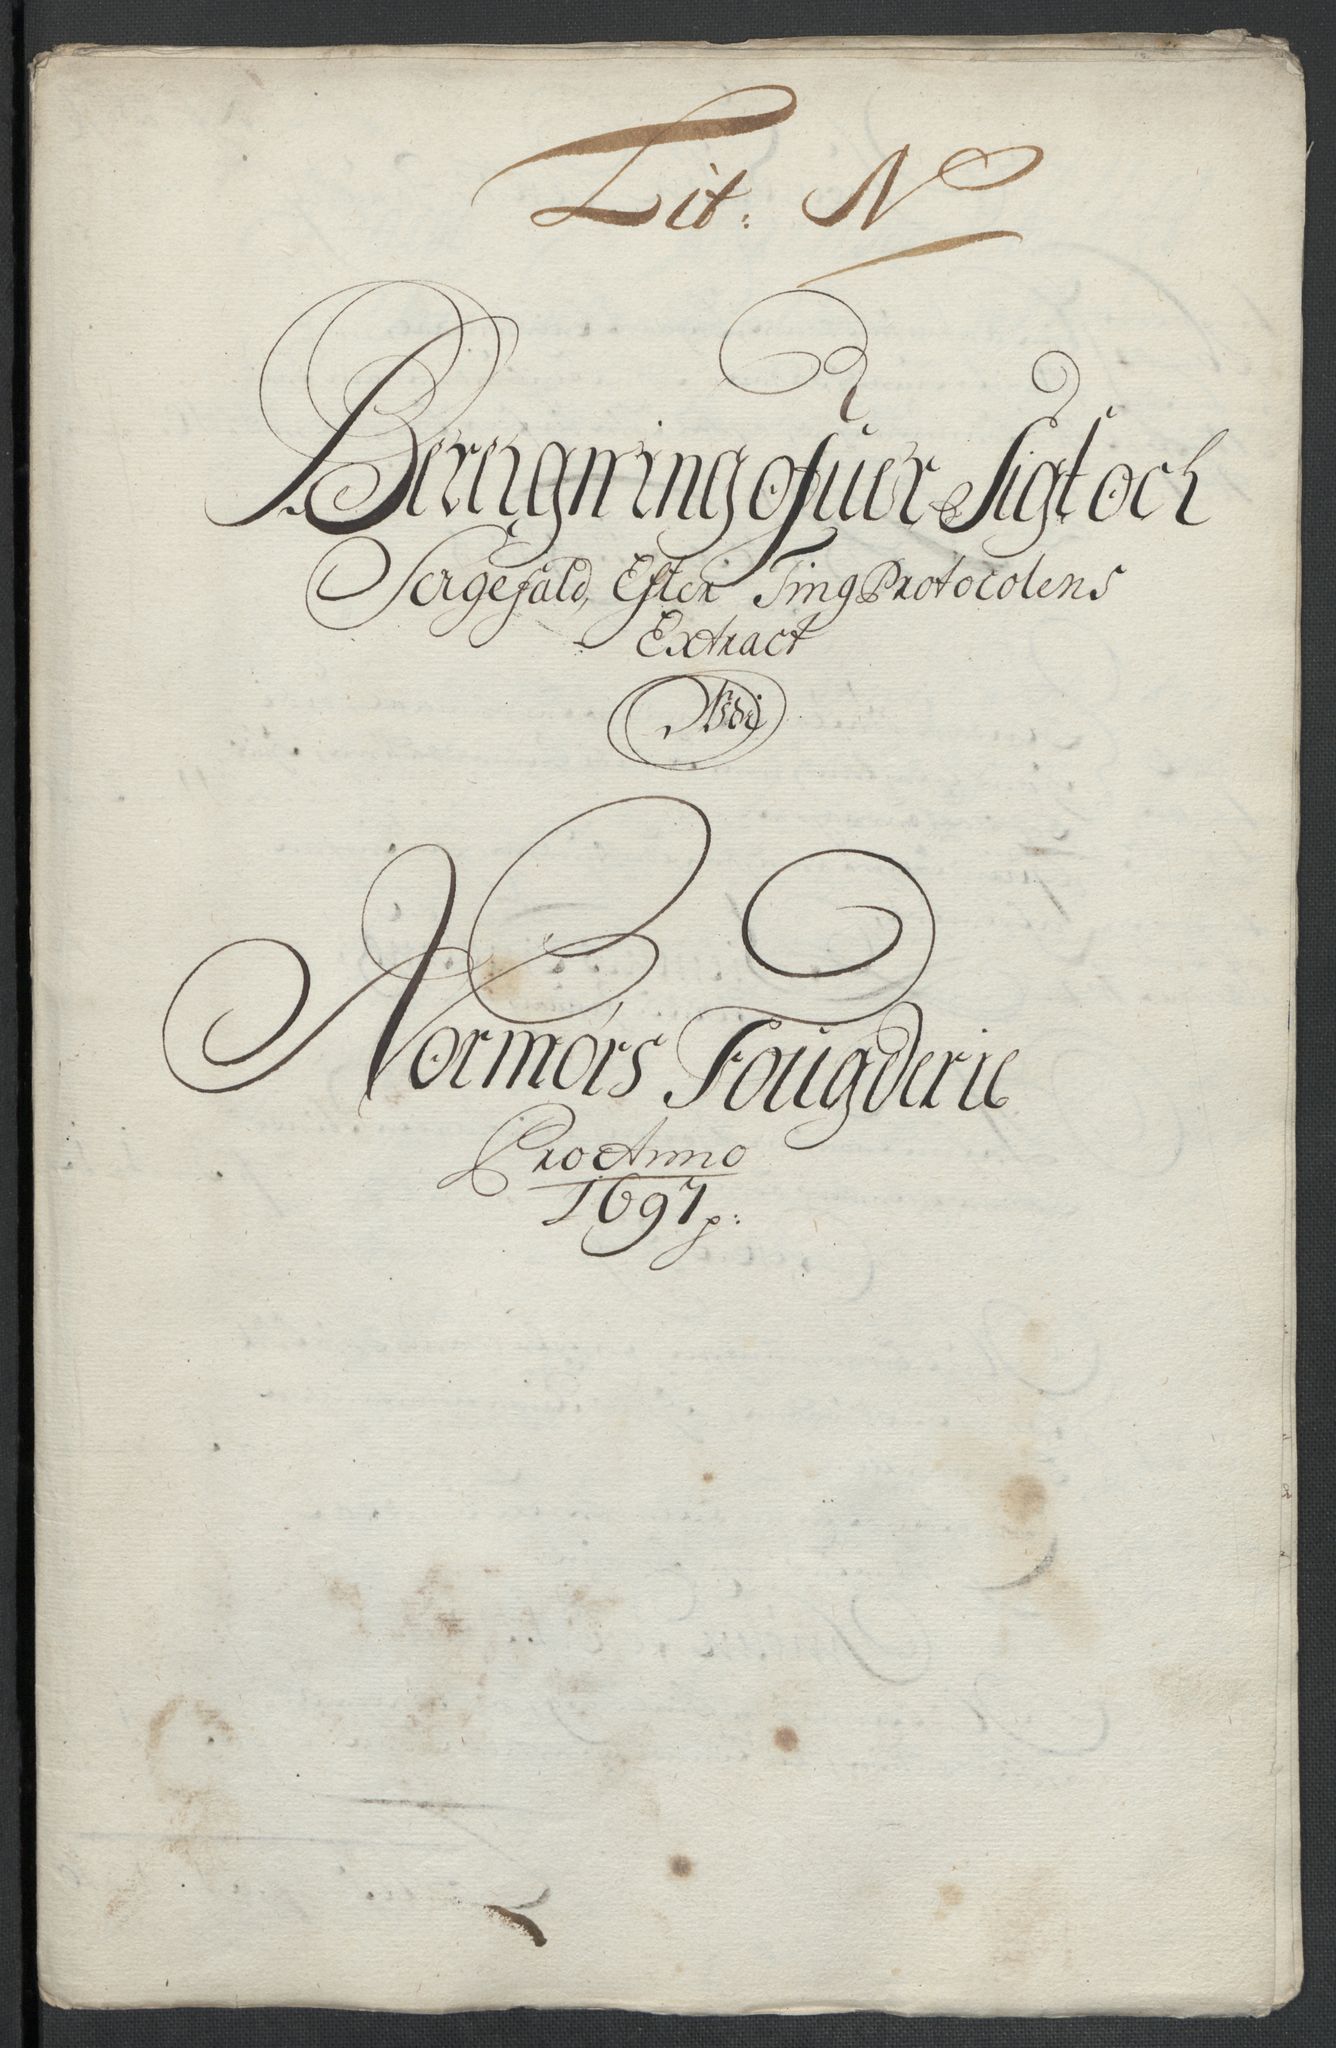 Lit: N
Bereigning ofuer Sigt och
Sagefald, Efter Ting Protocolens
Extract
Udi
Normørs Fougderie
Pro Anno
1697